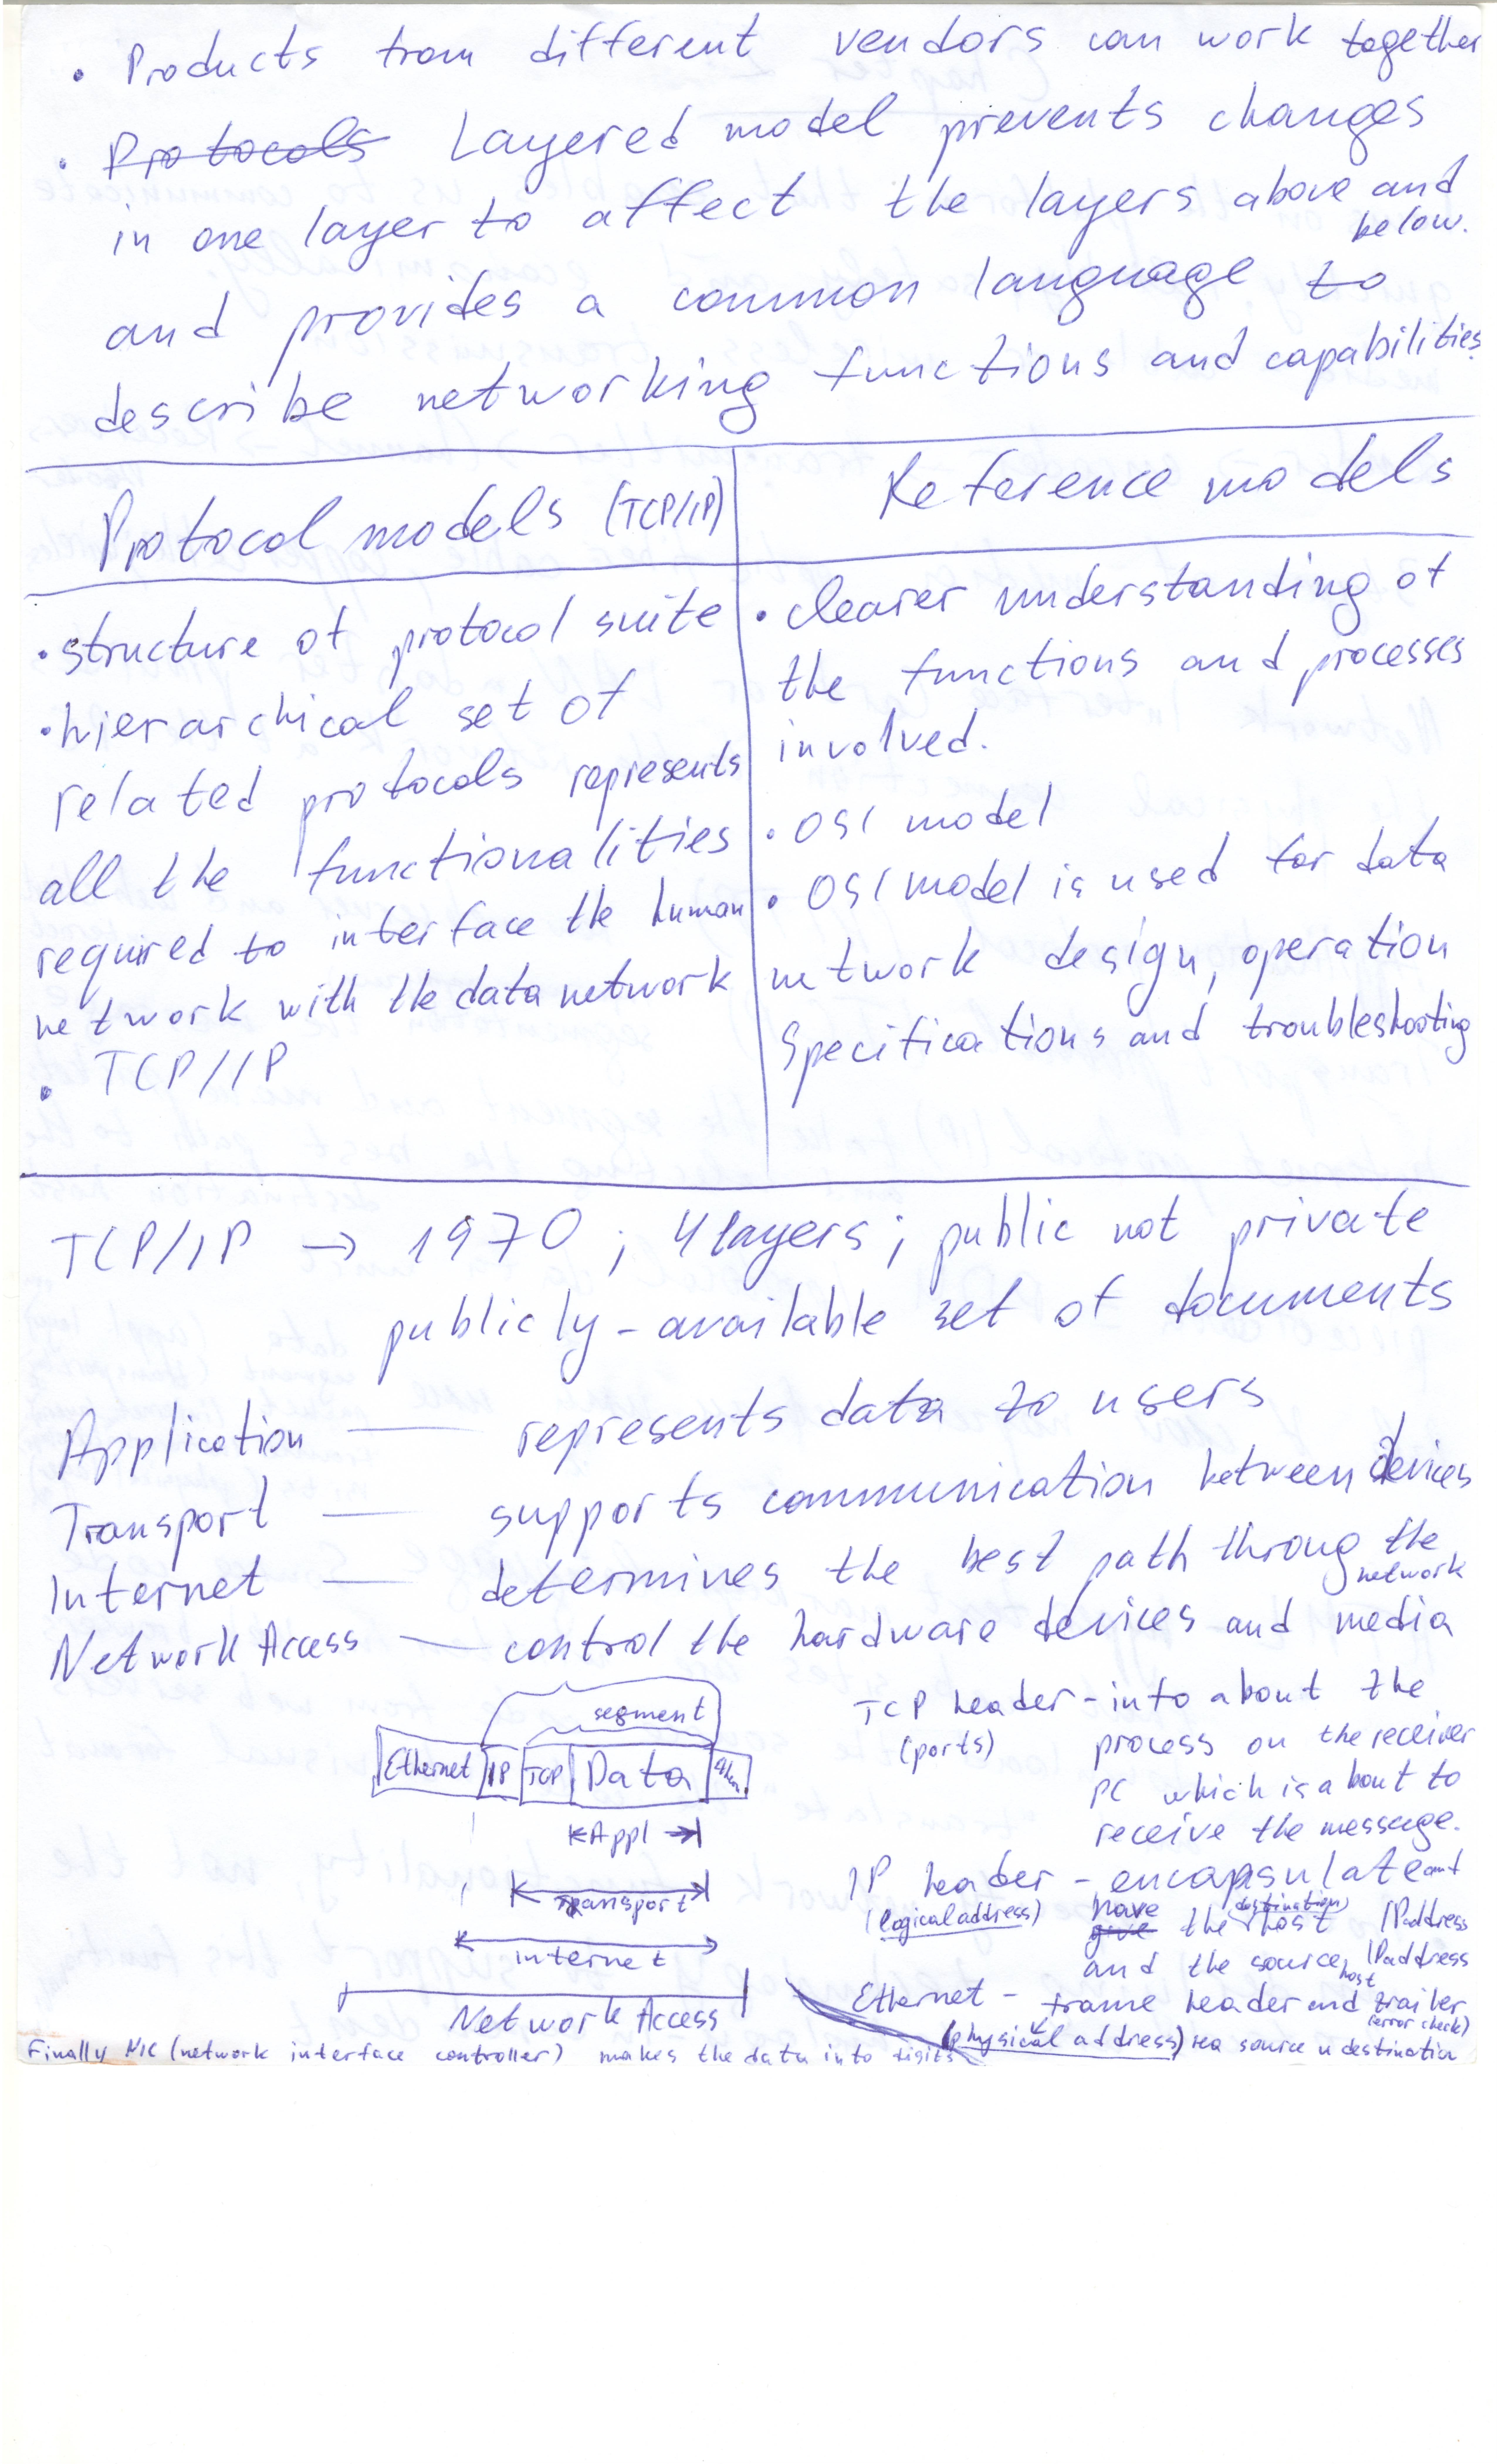 • Products from different vendors can work together
• Protocols Layered model prevents changes
in one layer to affect the layers above and
below.
and provides a common language to
describe networking functions and capabilities.
Protocol models (TCP/IP)
• structure of protocol suite
• hierarchical set of
related protocols represents
all the functionalities
required to interface the human
network with the data network
• TCP/IP
Reference models
• Clearer understanding of
the functions and processes
involved.
• OSI model
• OSI model is used for data
network design, operation
specifications and troubleshooting
TCP/IP → 1970 ; 4 layers ; public not private
publicly-available set of documents
Application — represents data to users
Transport — supports communication between devices
Internet — determines the best path throung the
network
Network Access — control the hardware devices and media
segment
Ethernet IP TCP Data
Appl
Transport
internet
Network Access
TCP header - info about the
(ports) process on the receiver
PC which is about to
receive the message.
IP header - encapsulate and
(logical address) have give the (destination) host IP address
and the source host IP address
Ethernet - frame header and trailer
(error check)
(physical address) на source и destination
Finally NIC (network interface controller) makes the data into digits